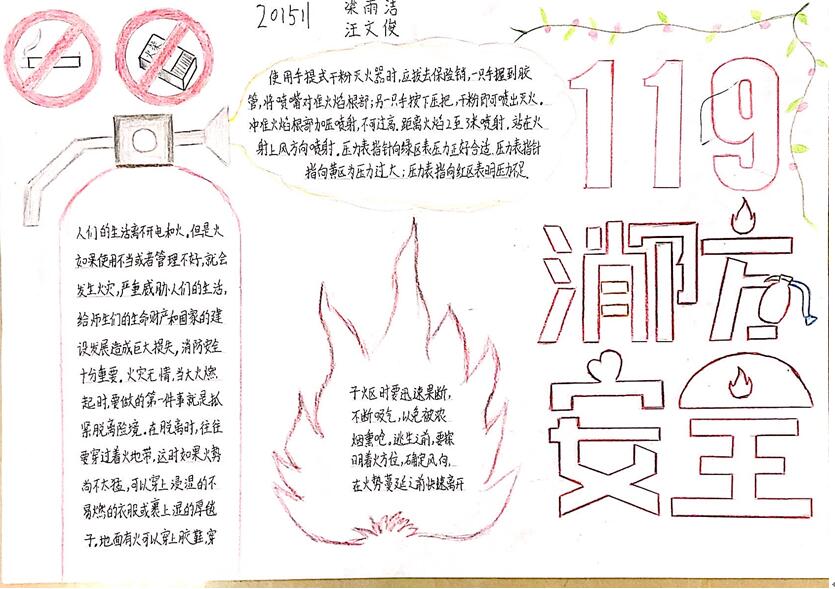 201511
梁雨洁
汪文俊
火柴
使用手提式干粉灭火器时,应拔去保险销,一只手握到胶
管,将喷嘴对准火焰根部;另一只手按下压把,干粉即可喷出灭火。
冲准火焰根部加压喷射,不可过高,距离火焰2至3米喷射,站在火
射上风方向喷射,压力表指针向绿区表压力正好合适,压力表指针
指向黄区为压力过大;压力表指向红区表明压力不足.
119
消防
安全
人们的生活离不开电和火。但是火
如果使用不当或者管理不好,就会
发生火灾,严重威胁人们的生活,
给师生们的生命财产和国家的建
设发展造成巨大损失,消防安全
十分重要。火灾无情,当大火燃
起时,要做的第一件事就是抓
紧脱离险境。在脱离时,往往
要穿过着火地带,这时如果火势
尚不太猛,可以穿上浸湿的不
易燃的衣服或裹上湿的厚毯
子,地面有火可以穿上胶鞋,穿
于火区时要迅速果断,
不断吸气,以免被浓
烟熏呛,逃生之前,要探
明着火方位,确定风向,
在火势蔓延之前快速离开